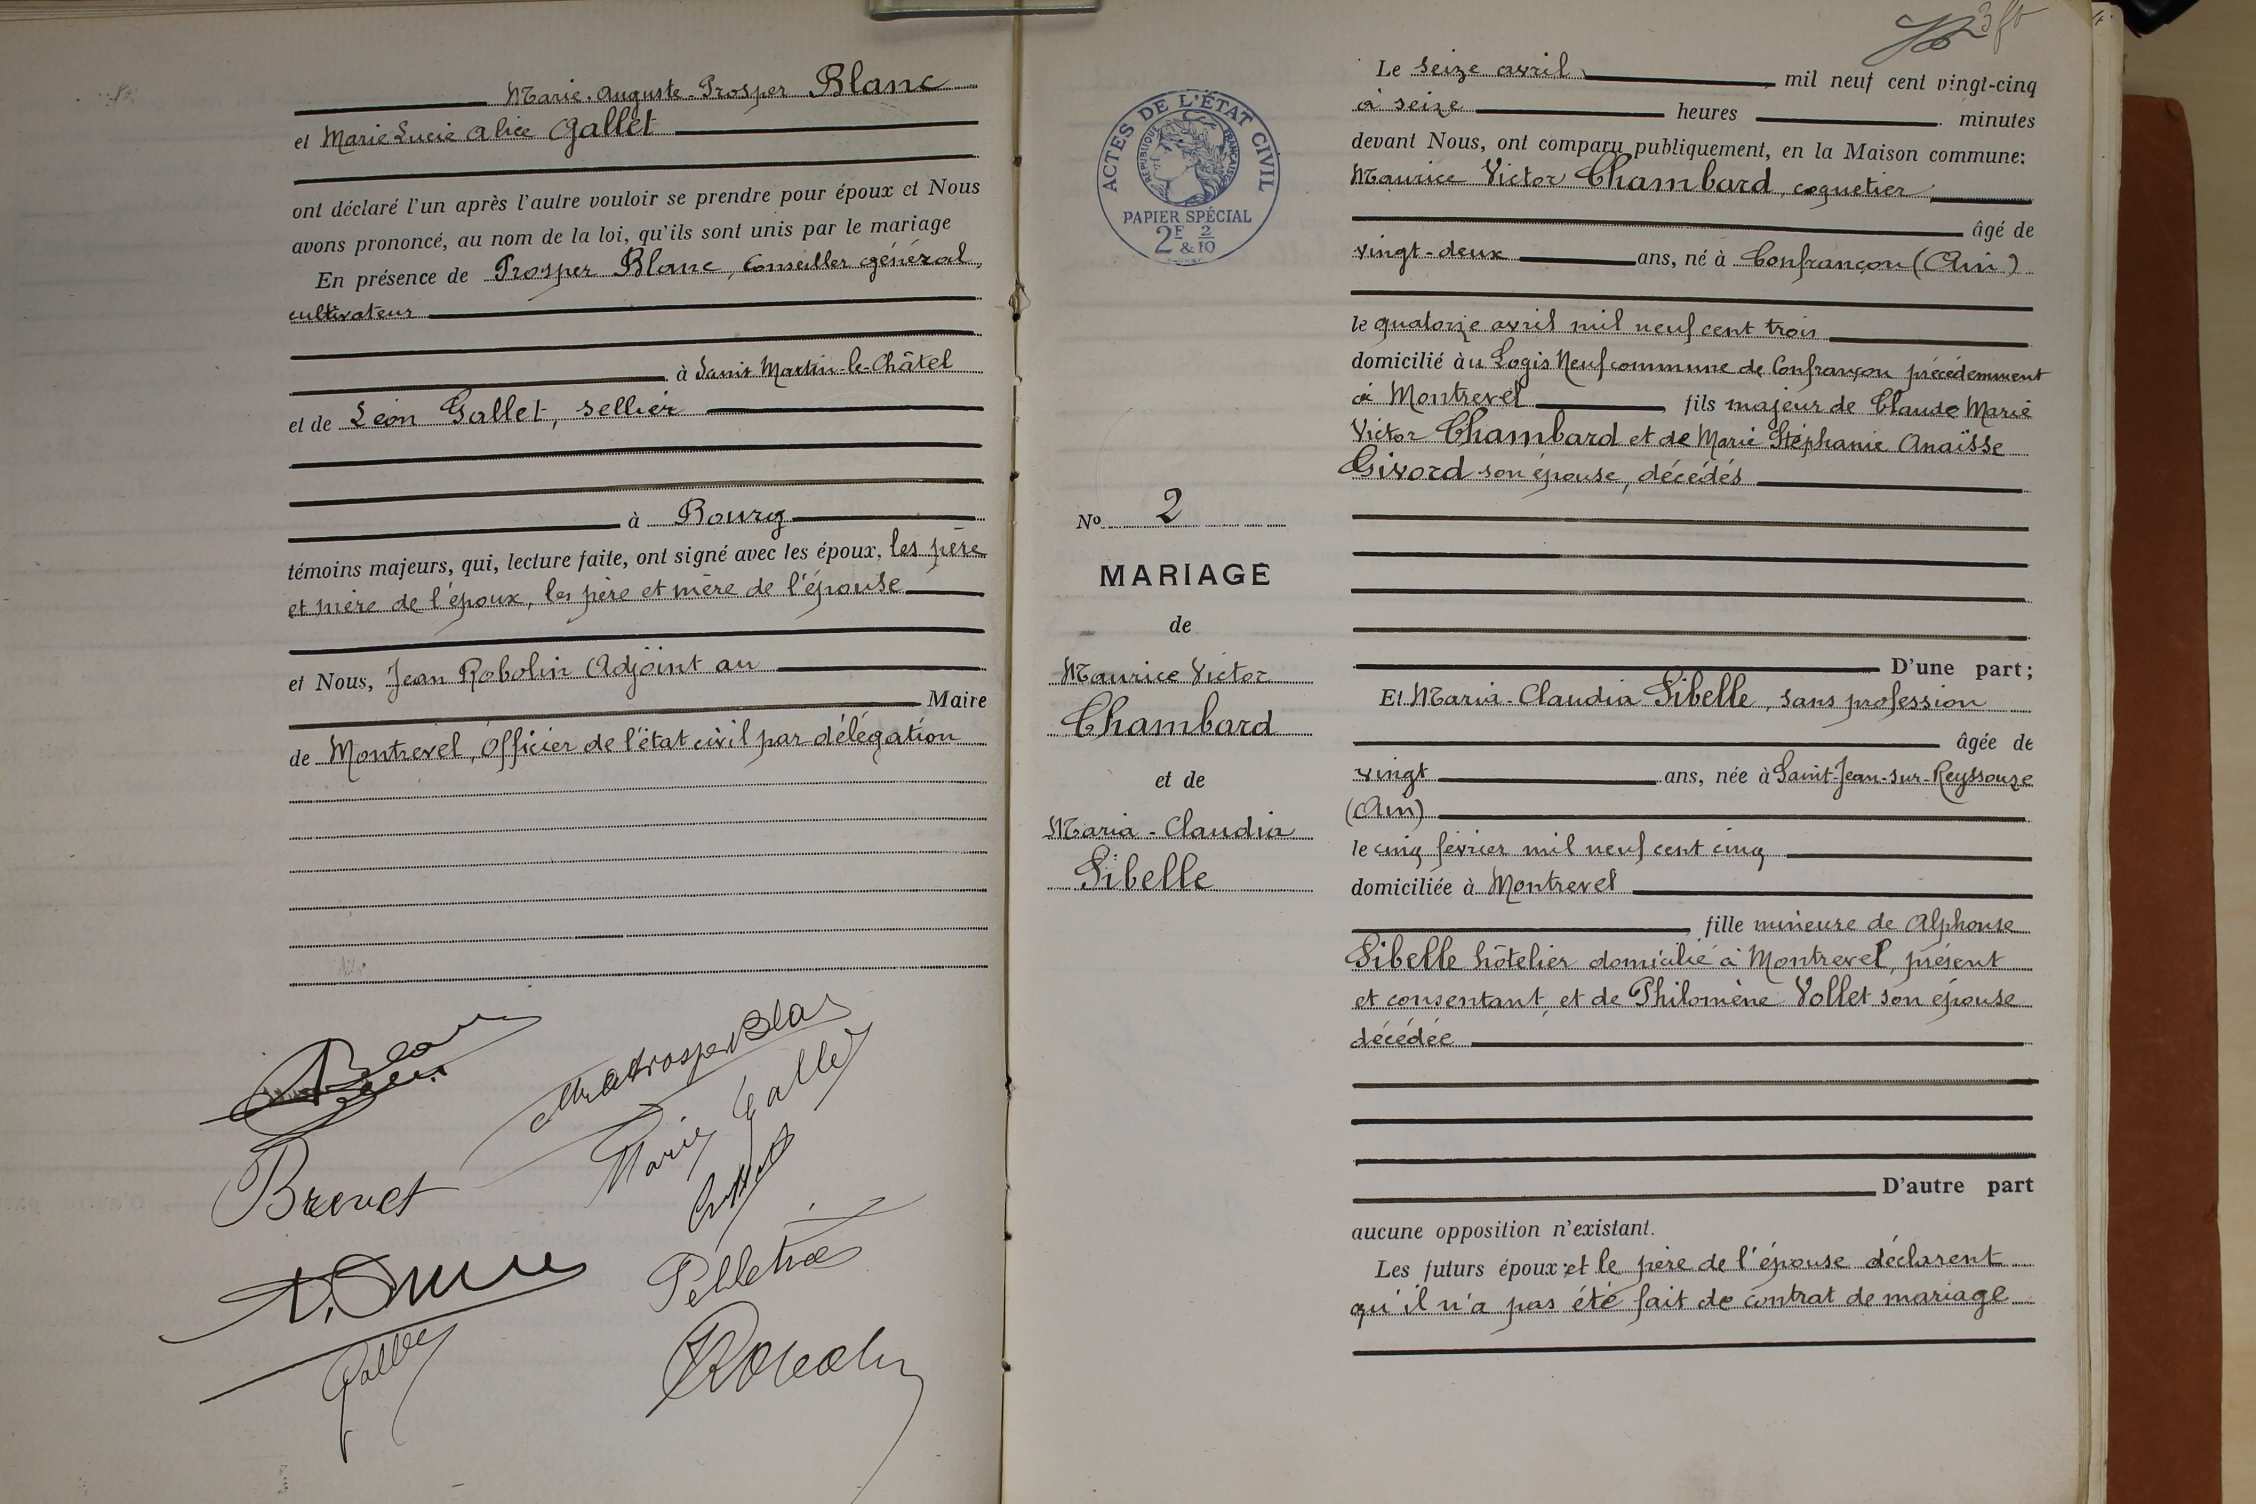 Marie-Auguste-Prosper Blanc
et Marie Lucie Alice Gallet
ont déclaré l'un après l'autre vouloir se prendre pour époux et Nous
avons prononcé, au nom de la loi, qu'ils sont unis par le mariage
En présence de Prosper Blanc, Conseiller général,
cultivateur
à Saint Martin-le-Châtel
et de Léon Gallet, sellier
à Bourg
témoins majeurs, qui, lecture faite, ont signé avec les époux, les père
et mère de l'époux, les père et mère de l'épouse
et Nous, Jean Robolin Adjoint au
Maire
de Montrevel, Officier de l'état civil par délégation
Marie Gallet
Brevet
Gallet
3 fo
ACTES DE L'ÉTAT CIVIL
RÉPUBLIQUE FRANÇAISE
PAPIER SPÉCIAL
2F & 2/10
No 2
MARIAGE
de
Maurice Victor
Chambard
et de
Maria-Claudia
Sibelle
Le seize avril mil neuf cent vingt-cinq
à seize heures minutes
devant Nous, ont comparu publiquement, en la Maison commune:
Maurice Victor Chambard, coquetier,
âgé de
vingt-deux ans, né à Confrançon (Ain)
le quatorze avril mil neuf cent trois
domicilié àu Logis Neuf commune de Confrançon précédemment
à Montrevel fils majeur de Claude Marie
Victor Chambard et de Marie Stéphanie Anaïsse
Givord son épouse, décédés
D'une part;
Et Maria-Claudia Sibelle, sans profession
âgée de
vingt ans, née à Saint-Jean-sur-Reyssouze
(Ain)
le cinq février mil neuf cent cinq
domiciliée à Montrevel
fille mineure de Alphonse
Sibelle hôtelier domicilié à Montrevel, présent
et consentant, et de Philomène Vollet son épouse
décédée
D'autre part
aucune opposition n'existant.
Les futurs époux et le père de l'épouse déclarent
qu'il n'a pas été fait de contrat de mariage